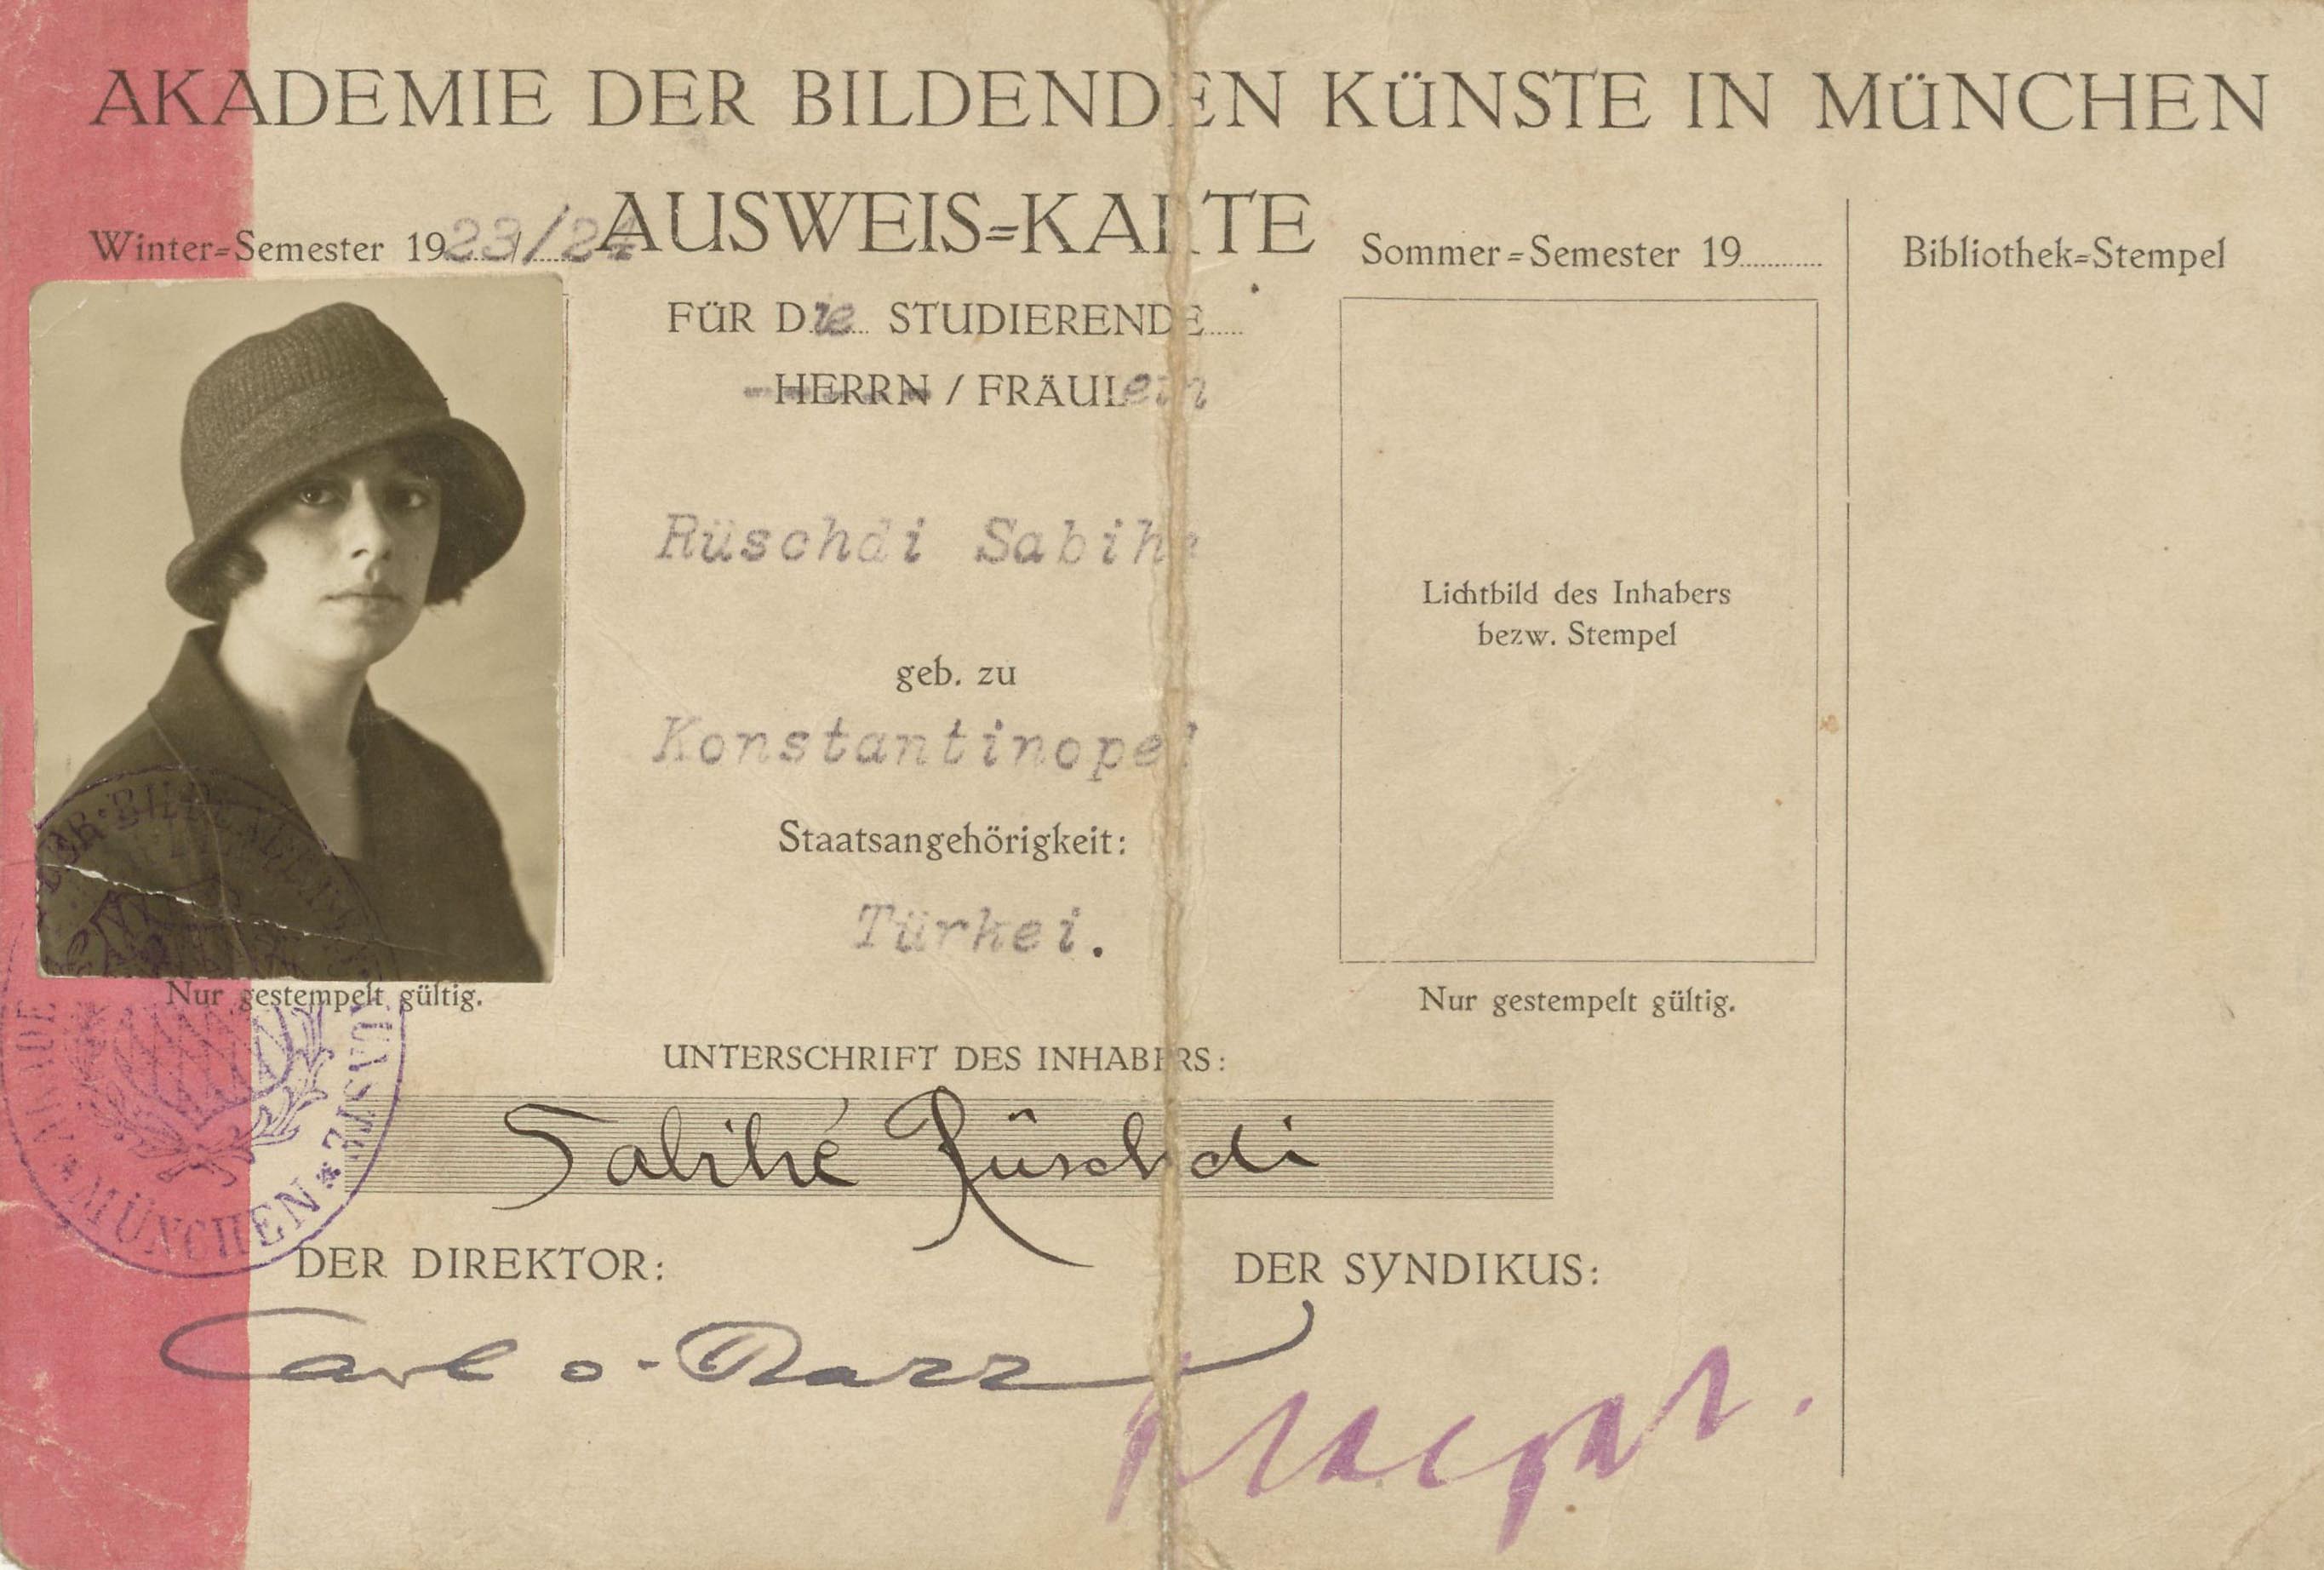 AKADEMIE DER BILDENDEN KÜNSTE IN MÜNCHEN
AUSWEIS=KARTE
Winter=Semester 1923/24
Sommer=Semester 19
Bibliothek=Stempel
FÜR Die STUDIERENDE
HERRN / FRÄULein
Rüschdi Sabihe
geb. zu
Konstantinopel
Staatsangehörigkeit:
Türkei.
Lichtbild des Inhabers
bezw. Stempel
Nur gestempelt gültig.
Nur gestempelt gültig.
UNTERSCHRIFT DES INHABERS:
Sabihé Rüschdi
MÜNCHEN
DER DIREKTOR:
DER SYNDIKUS:
Carl v. Marr